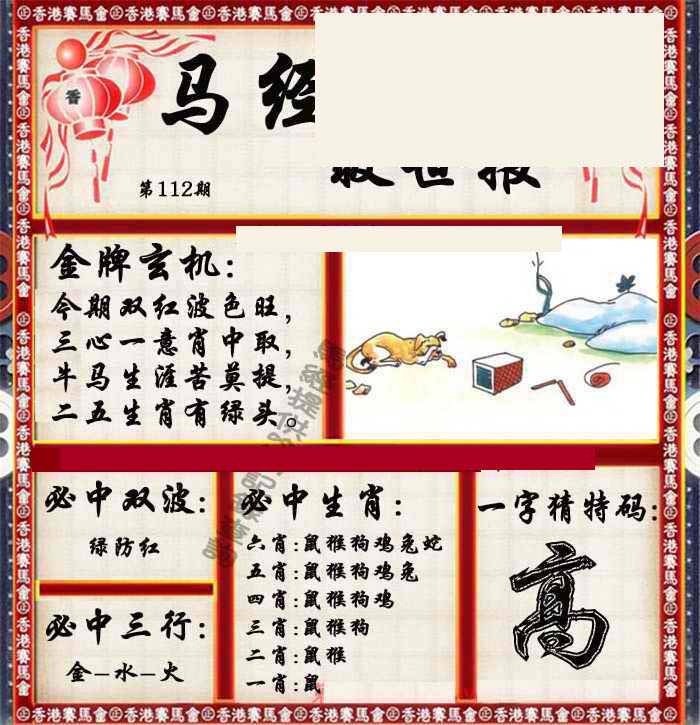 香港賽馬會
香
马经
救世报
第112期
金牌玄机:
今期双红波色旺,
三心一意肖中取,
牛马生涯苦莫提,
二五生肖有绿头。
必中双波:
绿防红
必中三行:
金-水-火
必中生肖:
六肖:鼠猴狗鸡兔蛇
五肖:鼠猴狗鸡兔
四肖:鼠猴狗鸡
三肖:鼠猴狗
二肖:鼠猴
一肖:鼠
一字猜特码:
高